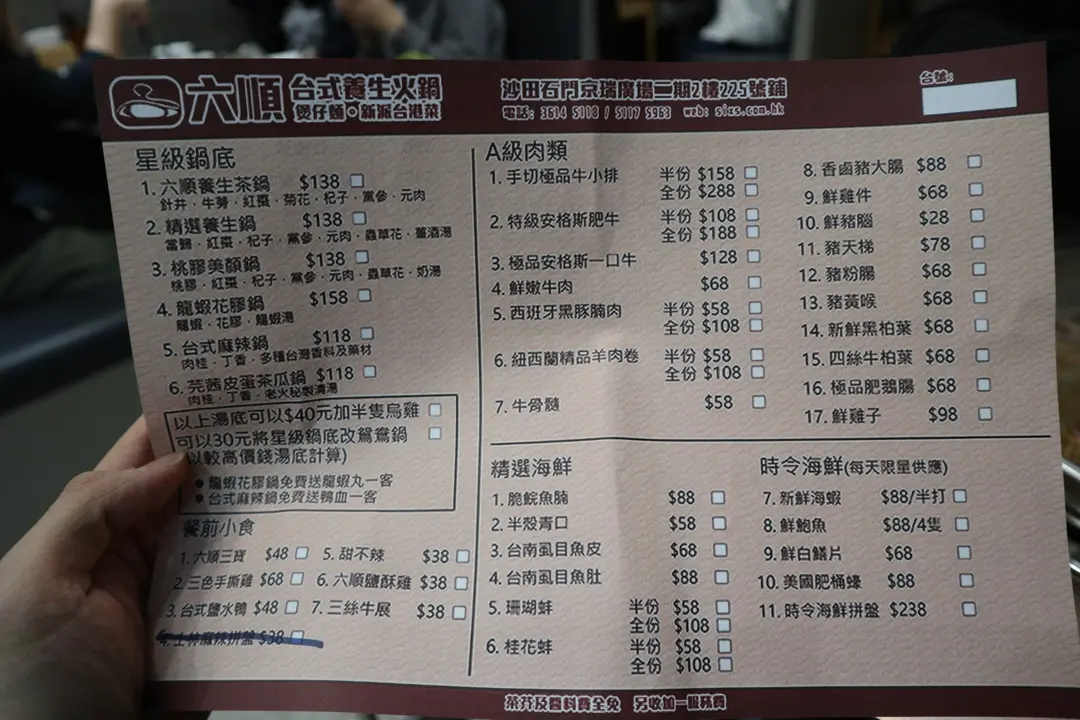 六順 台式養生火鍋
煲仔麵•新派台港菜
沙田石門京瑞廣場二期2樓225號鋪
電話: 3614 5118 / 5117 5953 web: sixs.com.hk
台號:
星級鍋底
1. 六順養生茶鍋 $138
針井．牛蒡．紅棗．菊花．杞子．黨參．元肉
2. 精選養生鍋 $138
當歸．紅棗．杞子．黨參．元肉．蟲草花．薑酒湯
3. 桃膠美顏鍋 $138
桃膠．紅棗．杞子．黨參．元肉．蟲草花．奶湯
4. 龍蝦花膠鍋 $158
龍蝦．花膠．龍蝦湯
5. 台式麻辣鍋 $118
肉桂．丁香．多種台灣香料及藥材
6. 芫茜皮蛋茶瓜鍋 $118
肉桂．丁香．老火秘製清湯
以上湯底可以$40元加半隻烏雞
可以30元將星級鍋底改鴛鴦鍋
以較高價錢湯底計算)
● 龍蝦花膠鍋免費送龍蝦丸一客
● 台式麻辣鍋免費送鴨血一客
餐前小食
1. 六順三寶 $48
2. 三色手撕雞 $68
3. 台式鹽水鴨 $48
4. 士林麻辣拼盤 $38
5. 甜不辣 $38
6. 六順鹽酥雞 $38
7. 三絲牛展 $38
A級肉類
1. 手切極品牛小排 半份 $158
全份 $288
2. 特級安格斯肥牛 半份 $108
全份 $188
3. 極品安格斯一口牛 $128
4. 鮮嫩牛肉 $68
5. 西班牙黑豚腩肉 半份 $58
全份 $108
6. 紐西蘭精品羊肉卷 半份 $58
全份 $108
7. 牛骨髓 $58
8. 香鹵豬大腸 $88
9. 鮮雞件 $68
10. 鮮豬腦 $28
11. 豬天梯 $78
12. 豬粉腸 $68
13. 豬黃喉 $68
14. 新鮮黑柏葉 $68
15. 四絲牛柏葉 $68
16. 極品肥鵝腸 $68
17. 鮮雞子 $98
精選海鮮
1. 脆鯇魚腩 $88
2. 半殼青口 $58
3. 台南虱目魚皮 $68
4. 台南虱目魚肚 $88
5. 珊瑚蚌 半份 $58
全份 $108
6. 桂花蚌 半份 $58
全份 $108
時令海鮮(每天限量供應)
7. 新鮮海蝦 $88/半打
8. 鮮鮑魚 $88/4隻
9. 鮮白鱔片 $68
10. 美國肥桶蠔 $88
11. 時令海鮮拼盤 $238
茶芥及醬料費全免 另收加一服務費